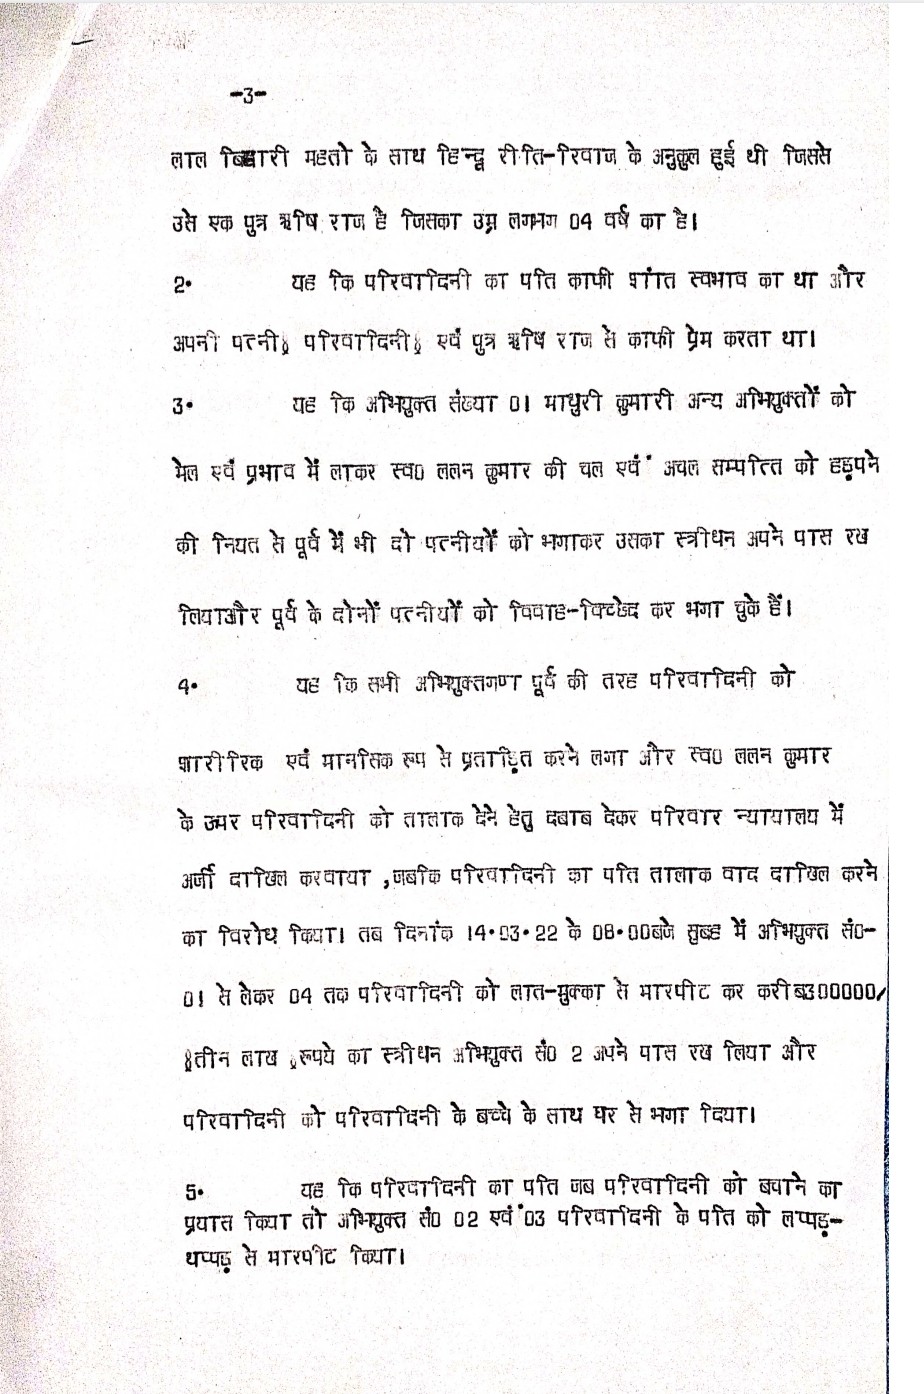 -3-
लाल बिहारी महतो के साथ हिन्दू रीति-रिवाज के अनुकुल हुई थी जिससे
उसे एक पुत्र ऋषि राज है जिसका उम्र लगभग 04 वर्ष का है।
2. यह कि परिवादिनी का पति काफी शांत स्वभाव का था और
अपनी पत्नी (परिवादिनी) एवं पुत्र ऋषि राज से काफी प्रेम करता था।
3. यह कि अभियुक्त संख्या 01 माधुरी कुमारी अन्य अभियुक्तों को
मेल एवं प्रभाव में लाकर स्व0 ललन कुमार की चल एवं अचल सम्पत्ति को हड़पने
की नियत से पूर्व में भी दो पत्नीयों को भगाकर उसका स्त्रीधन अपने पास रख
लियाऔर पूर्व के दोनों पत्नीयों को विवाह-विच्छेद कर भगा चुके हैं।
4. यह कि सभी अभियुक्तगण पूर्व की तरह परिवादिनी को
शारीरिक एवं मानसिक रूप से प्रताड़ित करने लगा और स्व0 ललन कुमार
के उपर परिवादिनी को तालाक देने हेतु दबाब देकर परिवार न्यायालय में
अर्जी दाखिल करवाया ,जबकि परिवादिनी का पति तालाक वाद दाखिल करने
का विरोध किया। तब दिनांक 14.03.22 के 08.00बजे सुबह में अभियुक्त सं0-
01 से लेकर 04 तक परिवादिनी को लात-मुक्का से मारपीट कर करीब300000/
(तीन लाख )रूपये का स्त्रीधन अभियुक्त सं0 2 अपने पास रख लिया और
परिवादिनी को परिवादिनी के बच्चे के साथ घर से भगा दिया।
5. यह कि परिवादिनी का पति जब परिवादिनी को बचाने का
प्रयास किया तो अभियुक्त सं0 02 एवं 03 परिवादिनी के पति को लप्पड़-
थप्पड़ से मारपीट किया।